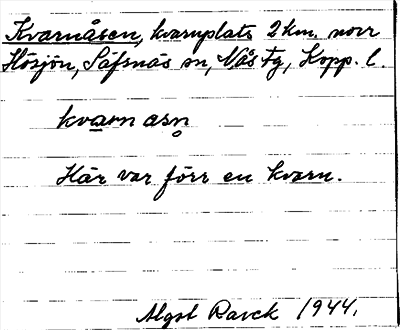 Kvarnåsen, kvarnplats 2 km. norr
Hösjön, Säfsnäs sn, Nås tg, Kopp. l.
kvarnåsn
Här var förr en kvarn.
Algot Ranck 1944.